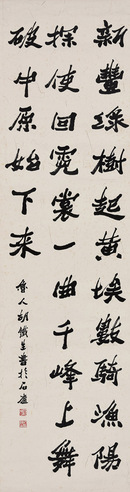 新豐綠樹起黄埃數騎漁陽
探使回霓裳一曲千峰上舞
破中原始下来
魯人胡鐵生書於石